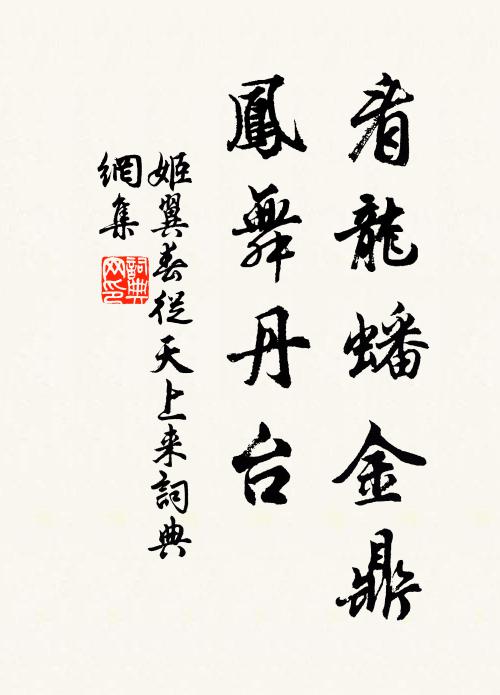 看龍蟠金鼎
鳳舞丹台
姬翼春從天上来詞典
網集
詞典
网印